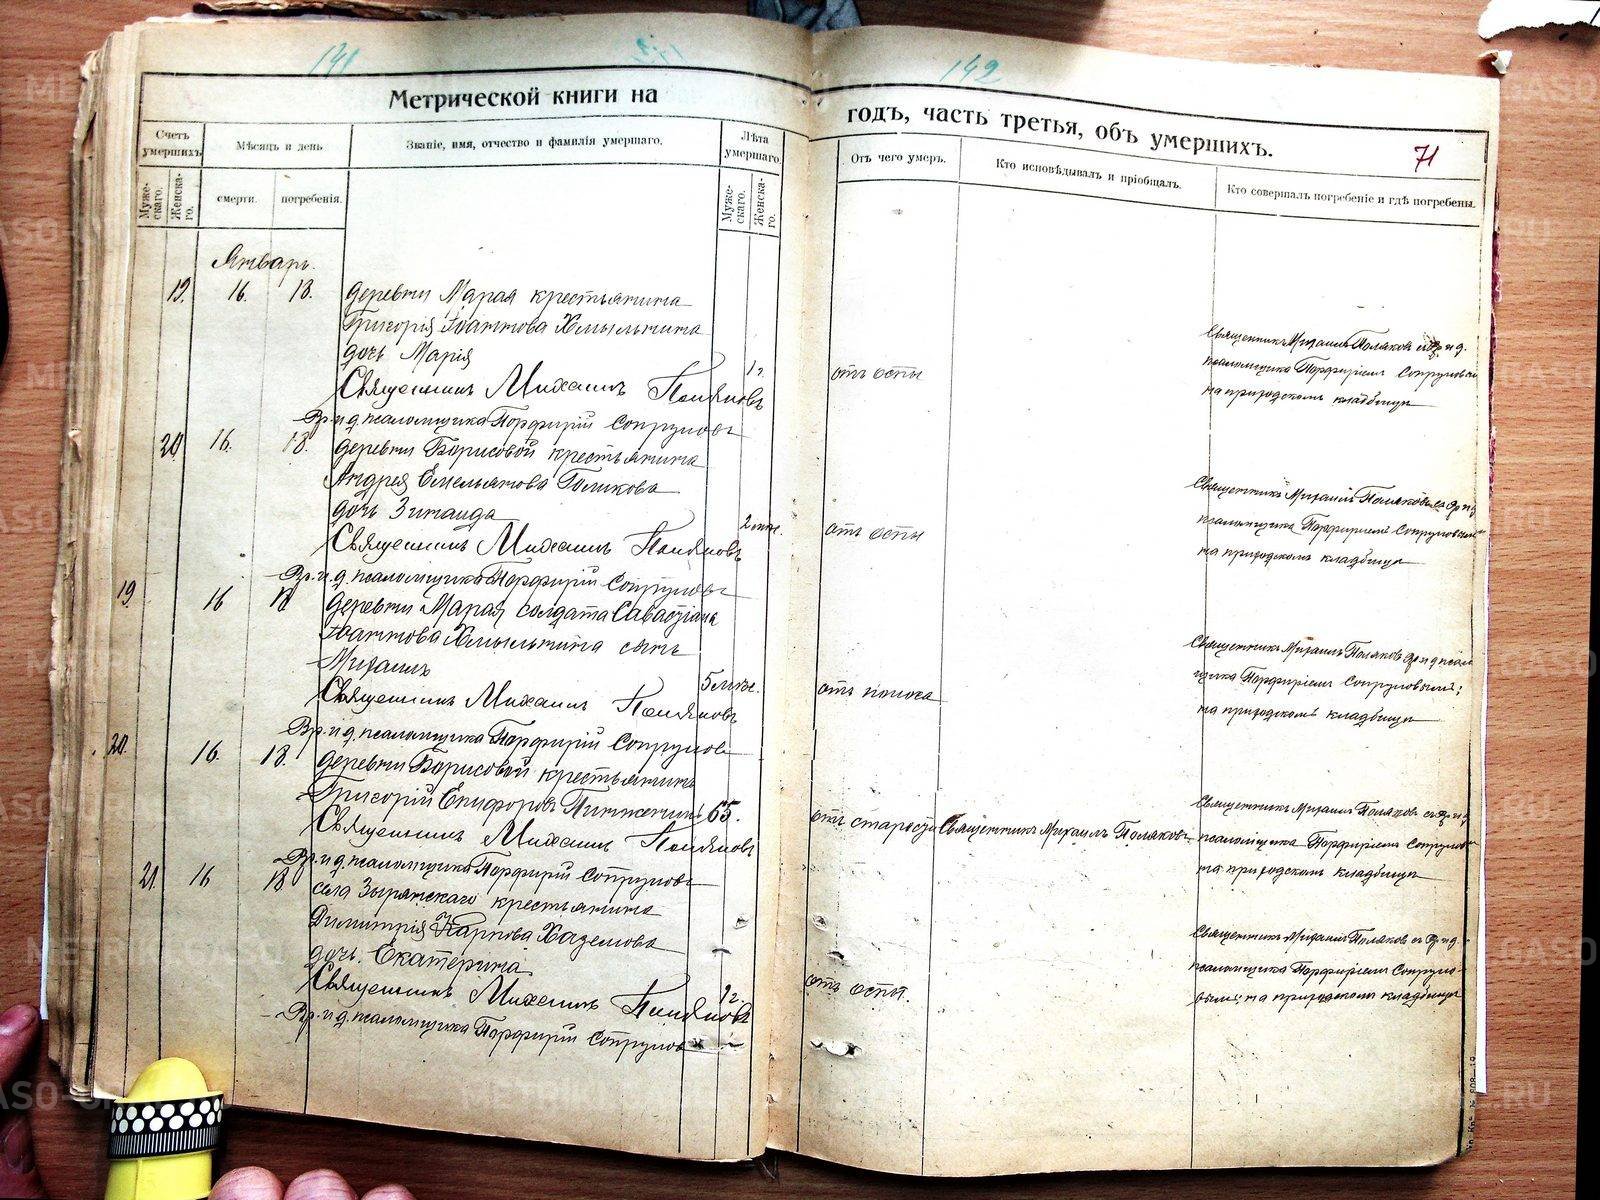 141
142
Метрической книги на
годъ, часть третья, объ умершихъ.
71
Счетъ умершихъ.
Мѣсяцъ и день
Званіе, имя, отчество и фамилія умершаго.
Лѣта умершаго.
Отъ чего умеръ.
Кто исповѣдывалъ и пріобщалъ.
Кто совершалъ погребеніе и гдѣ погребены.
Мужескаго.
Женскаго.
смерти.
погребенія.
Мужескаго.
Женскаго.
Январь.
19. 16. 18. деревни Марая крестьянина
Григорія Іоаннова Хмылынина
дочь Марія
1 г.
отъ оспы
Священникъ Михаилъ Поляковъ
Вр. и д. псаломщика Порфирій Сопруновъ
Священникъ Михаилъ Поляковъ съ Вр. и д.
псаломщика Порфиріемъ
на приходскомъ кладбищѣ
20. 16. 18. деревни Борисовой крестьянина
Андрея Емельянова Голикова
дочь Зинаида
2 мѣс.
отъ оспы
Священникъ Михаилъ Поляковъ
Вр. и д. псаломщика Порфирій Сопруновъ
Священникъ Михаилъ Поляковъ съ Вр. и д.
псаломщика Порфиріемъ Сопруновымъ
на приходскомъ кладбищѣ
19. 16 18 деревни Марая солдата Савастіана
Іоаннова Хмылынина сынъ
Михаилъ
5 мѣс.
отъ поноса
Священникъ Михаилъ Поляковъ
Вр. и д. псаломщика Порфирій Сопруновъ
Священникъ Михаилъ Поляковъ Вр и д псалом
щика Порфиріемъ Сопруновымъ;
на приходскомъ кладбищѣ
20. 16. 18. деревни Борисовой крестьянинъ
Григорій Никифоровъ
65.
отъ старости
Священникъ Михаилъ Поляковъ
Священникъ Михаилъ Поляковъ
Вр. и д. псаломщика Порфирій Сопруновъ
Священникъ Михаилъ Поляковъ съ Вр. и д.
псаломщика Порфиріемъ
на приходскомъ кладбищѣ
21. 16 18 села Зырянскаго крестьянина
Димитрія Карпова
дочь Екатерина
отъ оспы.
Священникъ Михаилъ Поляковъ
Вр. и д. псаломщика Порфирій Сопруновъ
Священникъ Михаилъ Поляковъ съ Вр. и д.
псаломщика Порфиріемъ Сопруно-
вымъ; на приходскомъ кладбищѣ